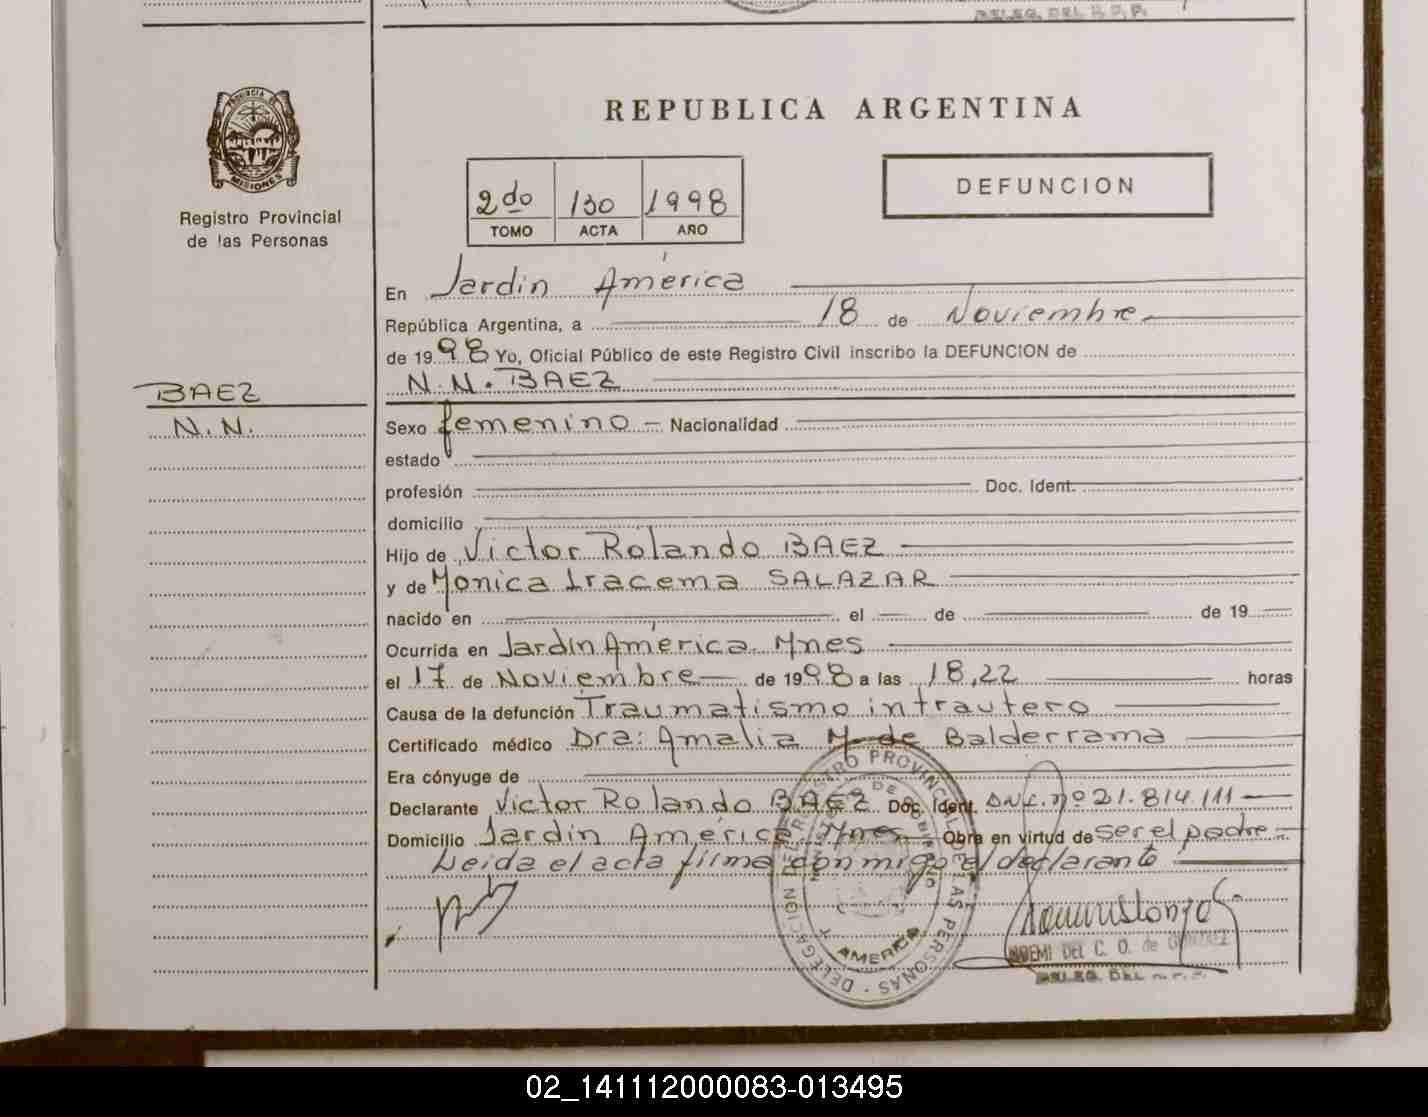 DELEG. DEL R. P. P.
PROVINCIA DE
MISIONES
Registro Provincial
de las Personas
REPUBLICA ARGENTINA
2do 130 1998
TOMO ACTA AÑO
DEFUNCION
En Jardin América
República Argentina, a 18 de Noviembre
de 1998 Yo, Oficial Público de este Registro Civil inscribo la DEFUNCION de
N.N. BAEZ
BAEZ
N.N.
Sexo femenino - Nacionalidad
estado
profesión Doc. Ident.
domicilio
Hijo de Victor Rolando BAEZ
y de Monica Iracema SALAZAR
nacido en el de de 19
Ocurrida en Jardin América. Mnes
el 17 de Noviembre de 1998 a las 18,22 horas
Causa de la defunción Traumatismo intrautero
Certificado médico Dra: Amalia M. de Balderrama
Era cónyuge de
Declarante Victor Rolando BAEZ Doc. Ident. D.N.I. nº 21.814.111
Domicilio Jardin América Mnes Obra en virtud de ser el padre
Leida el acta firma conmigo el declarante
DELEGACION DEL REGISTRO PROVINCIAL DE LAS PERSONAS
MINISTERIO DE GOBIERNO
J. AMERICA
NOEMI DEL C. O. de
DELEG. DEL R. P. P.
02_141112000083-013495